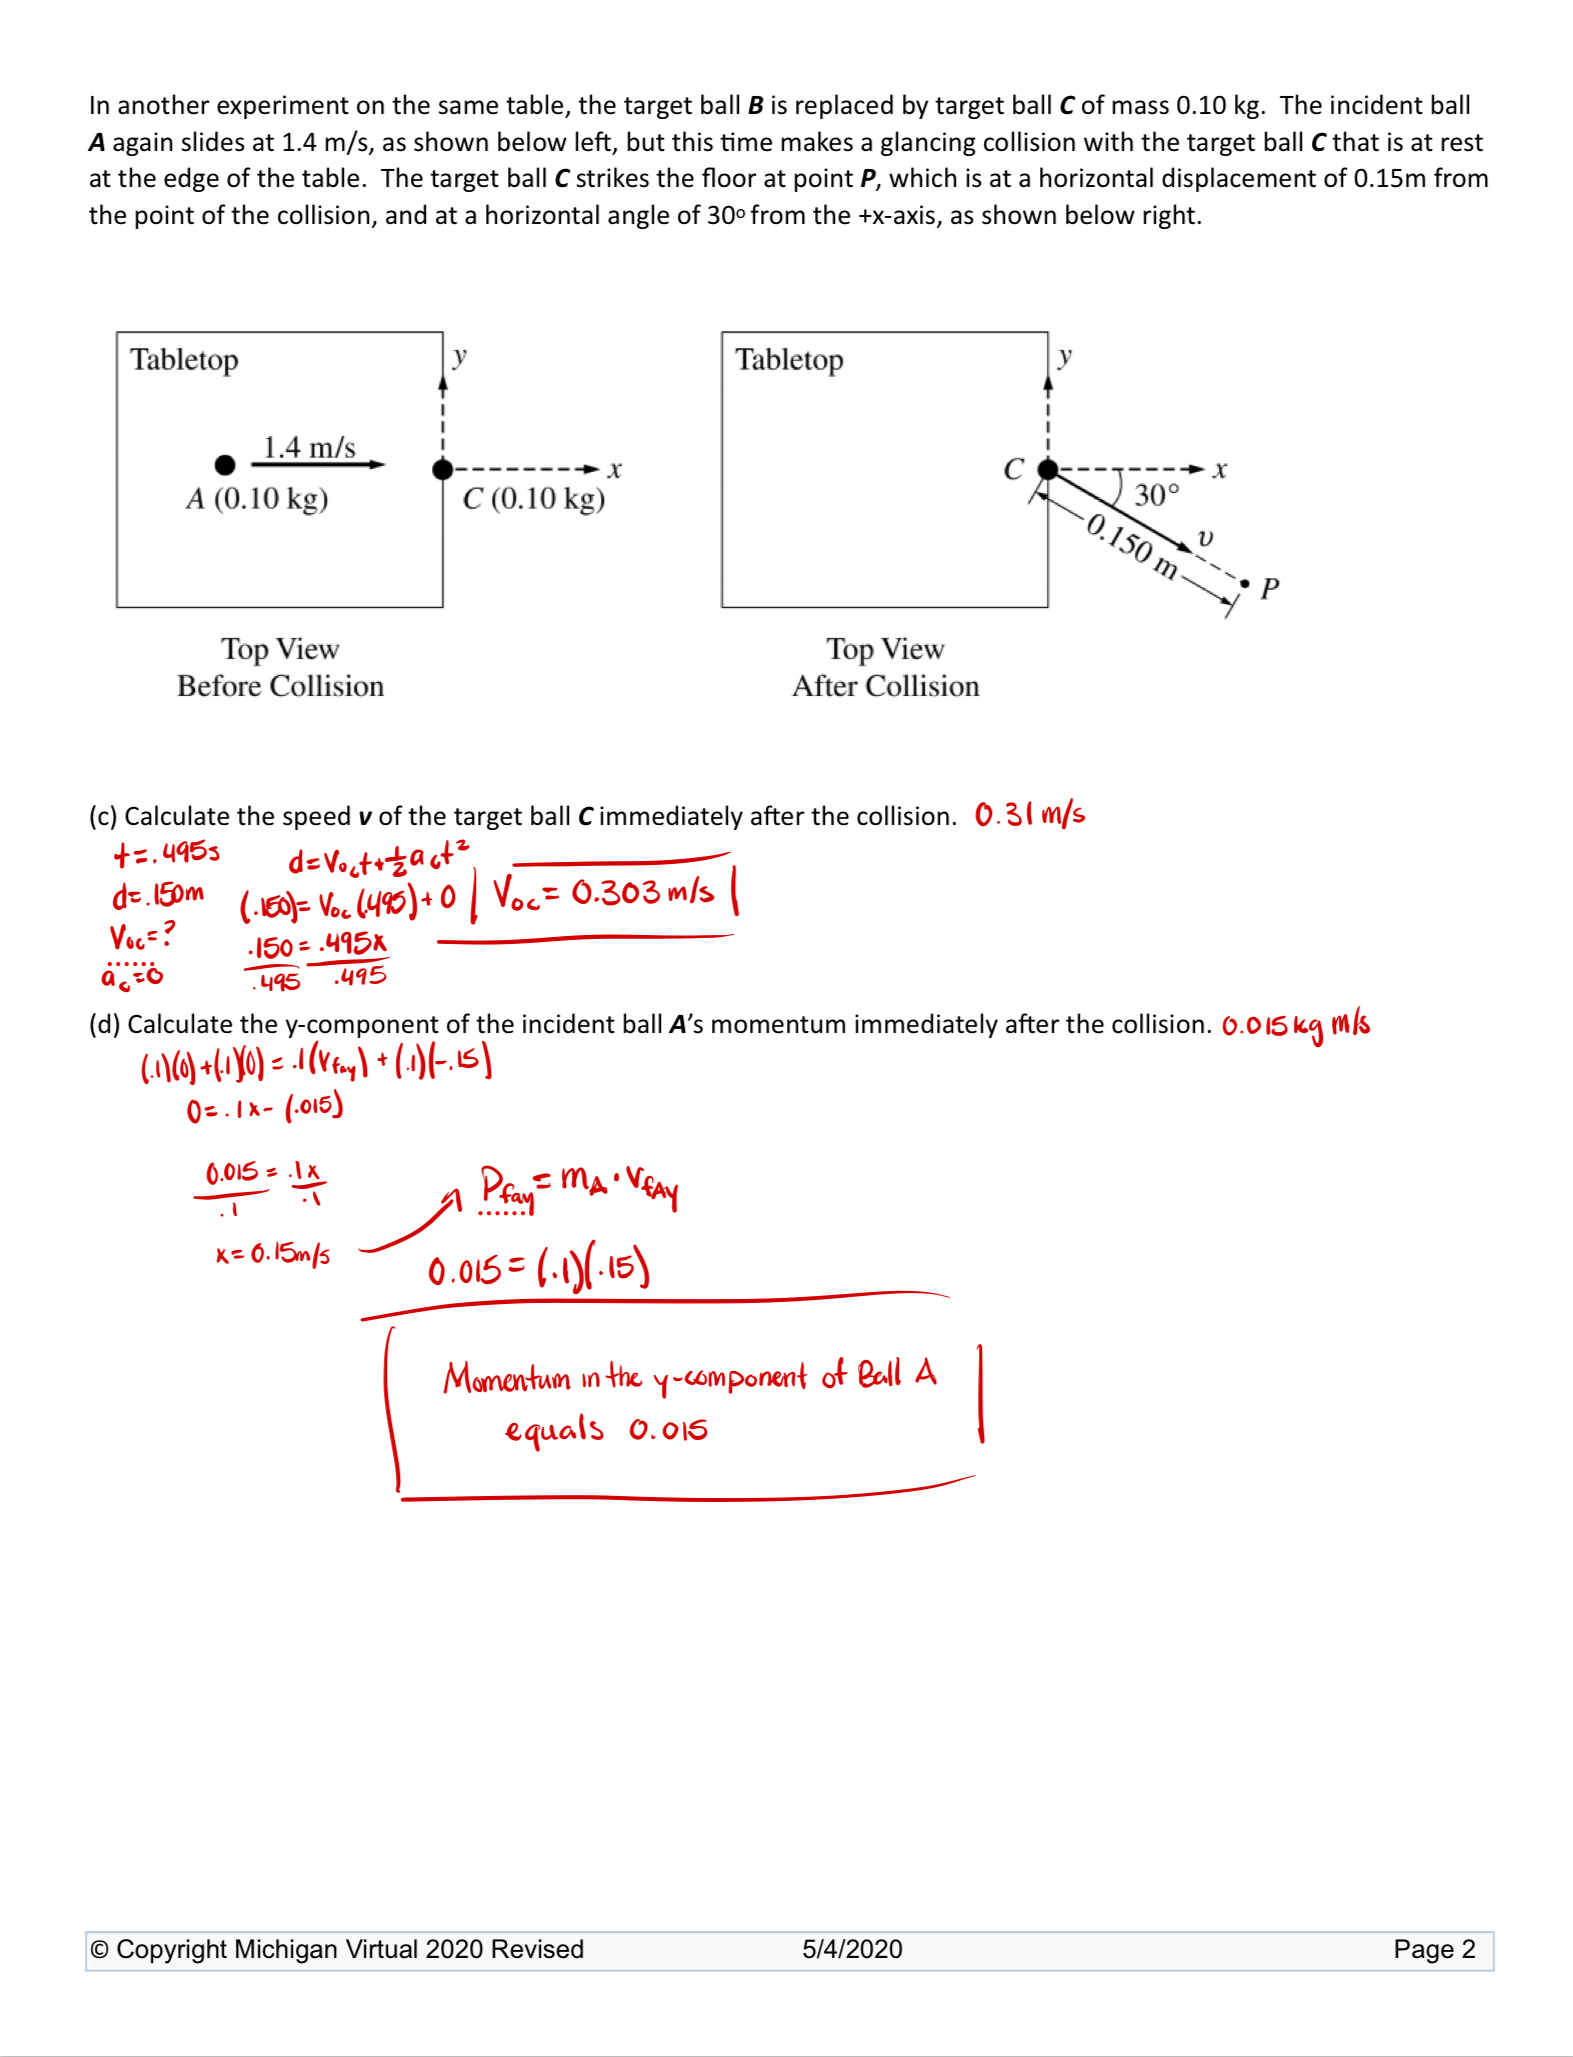 In another experiment on the same table, the target ball B is replaced by target ball C of mass 0.10 kg. The incident ball
A again slides at 1.4 m/s, as shown below left, but this time makes a glancing collision with the target ball C that is at rest
at the edge of the table. The target ball C strikes the floor at point P, which is at a horizontal displacement of 0.15m from
the point of the collision, and at a horizontal angle of 30° from the +x-axis, as shown below right.
Tabletop
y
1.4 m/s
x
A (0.10 kg)
C (0.10 kg)
Top View
Before Collision
Tabletop
y
C
x
30°
0.150 m
υ
P
Top View
After Collision
(c) Calculate the speed v of the target ball C immediately after the collision. 0.31 m/s
t=.495s
d=.150m
Voc=?
ac=0
d=Voct+½act²
(.150)=Voc(.495)+0
.150 = .495x
.495 .495
Voc= 0.303 m/s
(d) Calculate the y-component of the incident ball A’s momentum immediately after the collision. 0.015 kg m/s
(.1)(0)+(.1)(0) = .1(Vfay) + (.1)(-.15)
0=.1x-(.015)
0.015 = .1x
.1 .1
x=0.15m/s
Pfay=mA·VfAy
0.015=(.1)(.15)
Momentum in the y-component of Ball A
equals 0.015
© Copyright Michigan Virtual 2020 Revised 5/4/2020 Page 2